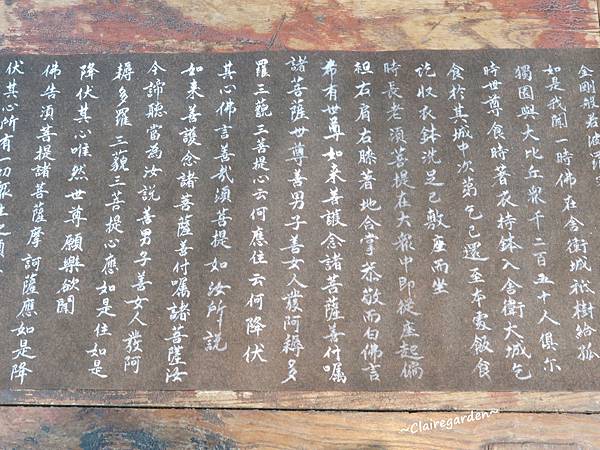 金剛般若波羅
如是我聞一時佛在舍衛城祇樹給孤
獨園與大比丘眾千二百五十人俱尓
時世尊食時著衣持鉢入舍衛大城乞
食於其城中次第乞已還至本處飯食
訖收衣鉢洗足已敷座而坐
時長老須菩提在大眾中即從座起偏
袒右肩右膝著地合掌恭敬而白佛言
希有世尊如来善護念諸菩薩善付囑
諸菩薩世尊善男子善女人發阿耨多
羅三藐三菩提心云何應住云何降伏
其心佛言善哉須菩提如汝所説
如来善護念諸菩薩善付囑諸菩薩汝
今諦聽當為汝説善男子善女人發阿
耨多羅三藐三菩提心應如是住如是
降伏其心唯然世尊願樂欲聞
佛告須菩提諸菩薩摩訶薩應如是降
伏其心所有一切眾生之類
~Clairegarden~